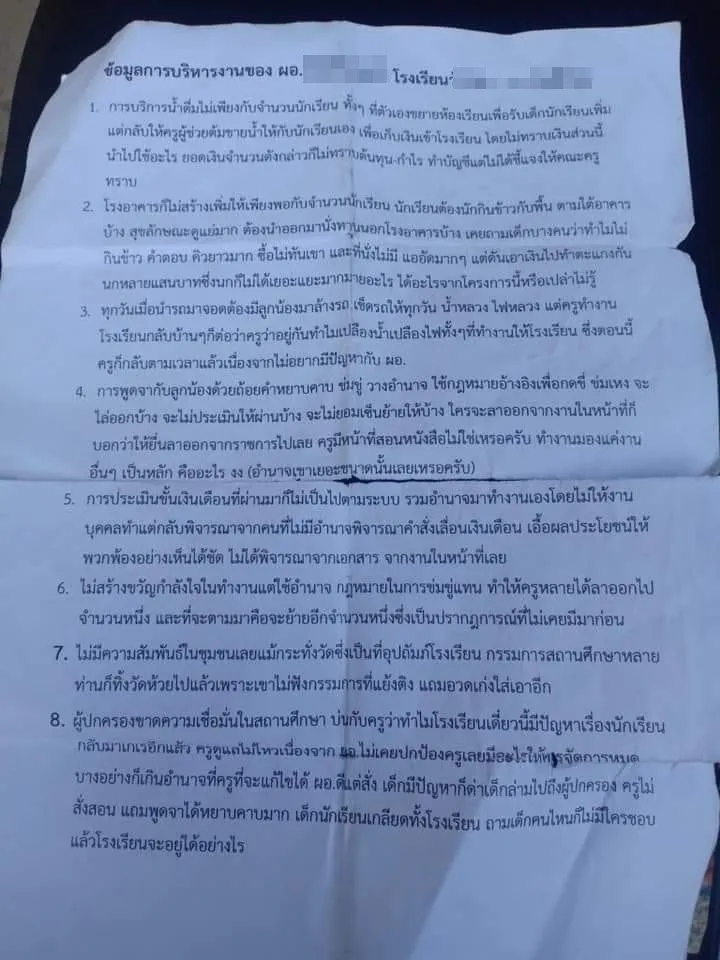 ข้อมูลการบริหารงานของ ผอ. โรงเรียน
1. การบริการน้ำดื่มไม่เพียงกับจำนวนนักเรียน ทั้งๆ ที่ตัวเองขยายห้องเรียนเพื่อรับเด็กนักเรียนเพิ่ม
แต่กลับให้ครูผู้ช่วยต้มขายน้ำให้กับนักเรียนเอง เพื่อเก็บเงินเข้าโรงเรียน โดยไม่ทราบเงินส่วนนี้
นำไปใช้อะไร ยอดเงินจำนวนดังกล่าวก็ไม่ทราบต้นทุน-กำไร ทำบัญชีแต่ไม่ได้ชี้แจงให้คณะครู
ทราบ
2. โรงอาคารก็ไม่สร้างเพิ่มให้เพียงพอกับจำนวนนักเรียน นักเรียนต้องนักกินข้าวกับพื้น ตามใต้อาคาร
บ้าง สุขลักษณะดูแย่มาก ต้องนำออกมานั่งทานนอกโรงอาคารบ้าง เคยถามเด็กบางคนว่าทำไมไม่
กินข้าว คำตอบ คิวยาวมาก ซื้อไม่ทันเขา และที่นั่งไม่มี แออัดมากๆ แต่ดันเอาเงินไปทำตะแกงกัน
นกหลายแสนบาทซึ่งนกก็ไม่ได้เยอะแยะมากมายอะไร ได้อะไรจากโครงการนี้หรือเปล่าไม่รู้
3. ทุกวันเมื่อนำรถมาจอดต้องมีลูกน้องมาล้างรถ เช็ดรถให้ทุกวัน น้ำหลวง ไฟหลวง แต่ครูทำงาน
โรงเรียนกลับบ้านๆก็ต่อว่าครูว่าอยู่กันทำไมเปลืองน้ำเปลืองไฟทั้งๆที่ทำงานให้โรงเรียน ซึ่งตอนนี้
ครูก็กลับตามเวลาแล้วเนื่องจากไม่อยากมีปัญหากับ ผอ.
4. การพูดจากับลูกน้องด้วยถ้อยคำหยาบคาบ ข่มขู่ วางอำนาจ ใช้กฎหมายอ้างอิงเพื่อกดขี่ ข่มเหง จะ
ไล่ออกบ้าง จะไม่ประเมินให้ผ่านบ้าง จะไม่ยอมเซ็นย้ายให้บ้าง ใครจะลาออกจากงานในหน้าที่ก็
บอกว่าให้ยื่นลาออกจากราชการไปเลย ครูมีหน้าที่สอนหนังสือไม่ใช่เหรอครับ ทำงานมองแค่งาน
อื่นๆ เป็นหลัก คืออะไร งง (อำนาจเขาเยอะขนาดนั้นเลยเหรอครับ)
5. การประเมินขั้นเงินเดือนที่ผ่านมาก็ไม่เป็นไปตามระบบ รวมอำนาจมาทำงานเองโดยไม่ให้งาน
บุคคลทำแต่กลับพิจารณาจากคนที่ไม่มีอำนาจพิจารณาคำสั่งเลื่อนเงินเดือน เอื้อผลประโยชน์ให้
พวกพ้องอย่างเห็นได้ชัด ไม่ได้พิจารณาจากเอกสาร จากงานในหน้าที่เลย
6. ไม่สร้างขวัญกำลังใจในทำงานแต่ใช้อำนาจ กฎหมายในการข่มขู่แทน ทำให้ครูหลายได้ลาออกไป
จำนวนหนึ่ง และที่จะตามมาคือจะย้ายอีกจำนวนหนึ่งซึ่งเป็นปรากฎการณ์ที่ไม่เคยมีมาก่อน
7. ไม่มีความสัมพันธ์ในชุมชนเลยแม้กระทั่งวัดซึ่งเป็นที่อุปถัมภ์โรงเรียน กรรมการสถานศึกษาหลาย
ท่านก็ทิ้งวัดห้วยไปแล้วเพราะเขาไม่ฟังกรรมการที่แย้งติง แถมอวดเก่งใส่เอาอีก
8. ผู้ปกครองขาดความเชื่อมั่นในสถานศึกษา บ่นกับครูว่าทำไมโรงเรียนเดี๋ยวนี้มีปัญหาเรื่องนักเรียน
กลับมาเกเรอีกแล้ว ครูดูแลไม่ไหวเนื่องจาก ผอ.ไม่เคยปกป้องครูเลยมีอะไรให้ครูจัดการหมด
บางอย่างก็เกินอำนาจที่ครูที่จะแก้ไขได้ ผอ.ดีแต่สั่ง เด็กมีปัญหาก็ด่าเด็กล่ามไปถึงผู้ปกครอง ครูไม่
สั่งสอน แถมพูดจาได้หยาบคาบมาก เด็กนักเรียนเกลียดทั้งโรงเรียน ถามเด็กคนไหนก็ไม่มีใครชอบ
แล้วโรงเรียนจะอยู่ได้อย่างไร